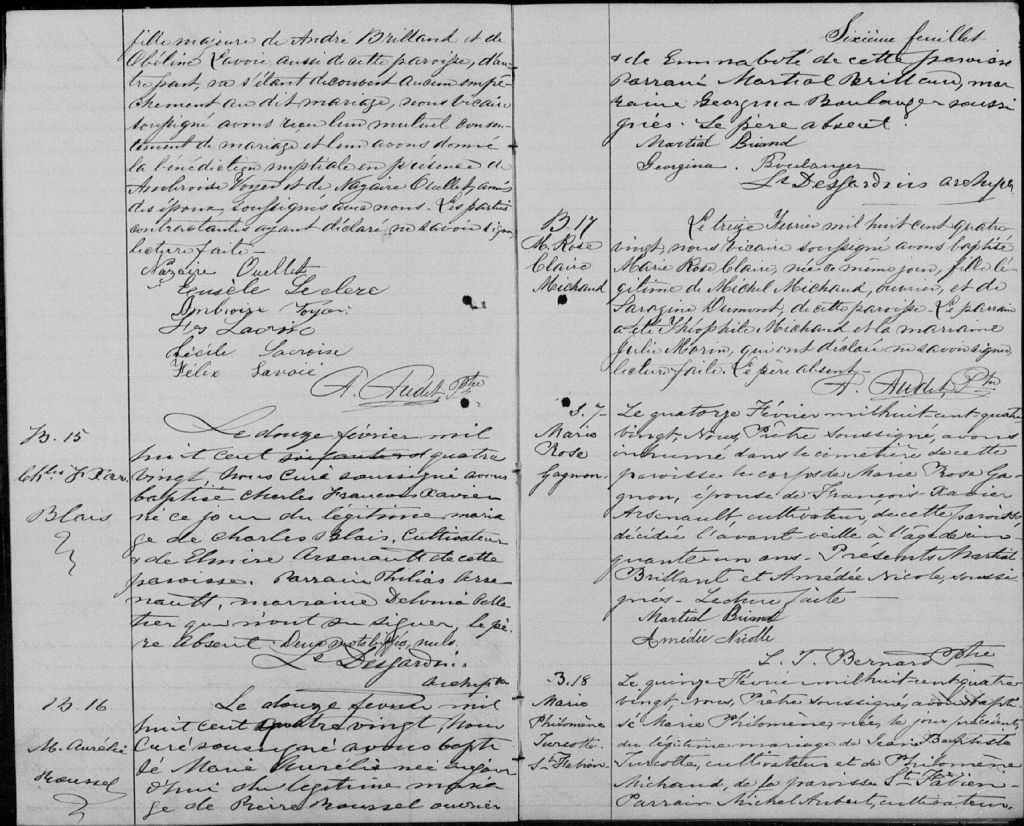 fille majeure de André Brilland et de
Obéline Lavoie aussi de cette paroisse, d'au-
tre part, ne s'étant découvert aucun empê-
chement au dit mariage, nous vicaire
soussigné avons reçu leur mutuel consen-
tement de mariage et leur avons donné
la bénédiction nuptiale en présence de
Ambroise Voyer et de Nazaire Ouellet, amis
des époux, soussignés avec nous. Les parties
contractantes ayant déclaré ne savoir signer,
lecture faite.
Nazaire Ouellet
Leclerc
Ambroise Voyer
Lavoie
Cécile Lacroise
Félix Lavoie
A. Audet, Ptre
B. 15
Chs F Xav.
Blais
Le douze février mil
huit cent soixante et quatre
vingt, Nous Curé soussigné avons
baptisé Charles François Xavier
né ce jour du légitime maria
ge de Charles Blais, Cultivateur
& de Elmire Arsenault de cette
paroisse. Parrain Philias Arse
nault, marraine Delvina Pelle
tier qui n'ont su signer, le pè-
re absent. Deux mots biffés, nuls.
Ls Desjardins
archiptre
B. 16
M. Aurélie
Roussel
Le douze février mil
huit cent quatre vingt, Nous
Curé soussigné avons bapti
sé Marie Aurélie née aujour
d'hui du légitime maria
ge de Pierre Roussel ouvrier
Sixième feuillet
& de Emma de cette paroisse
Parrain Martial Brilland, mar
raine Georgina Boulanger soussi
gnés. Le père absent.
Martial Briand
Georgina Boulanger
Ls Desjardins archiptr
B. 17
M. Rose
Claire
Michaud
Le treize Février mil huit cent quatre-
vingt, nous vicaire soussigné avons baptisé
Marie Rose Claire, née ce même jour, fille lé-
gitime de Michel Michaud, ouvrier, et de
Sarazine Dumont, de cette paroisse. Le parrain
a été Théophile Michaud et la marraine
Julie Morin, qui ont déclaré ne savoir signer,
lecture faite. Le père absent.
A. Audet, Ptre
S. 7-
Marie
Rose
Gagnon.
Le quatorze Février mil huit-cent-quatre
vingt, Nous, Prêtre soussigné, avons
inhumé dans le cimetière de cette
paroisse le corps de Marie Rose Ga-
gnon, épouse de François-Xavier
Arsenault, cultivateur, de cette paroisse
décédée l'avant veille à l'âge de cin
quante un ans. Présents Martial
Brillant et Amédée Nicole, soussi
gnés - Lecture faite -
Martial Briand
Amédée Nicolle
L. T. Bernard Ptre
B. 18
Marie
Philomène
Turcotte
St Fabien.
Le quinze Février mil huit-cent quatre
vingt, Nous, Prêtre soussigné, avons bapti
sé Marie Philomène, née, le jour précédent,
du légitime mariage de Jean Baptiste
Turcotte, cultivateur, et de Philomène
Michaud, de la paroisse St Fabien-
Parrain Michel Aubert, cultivateur,